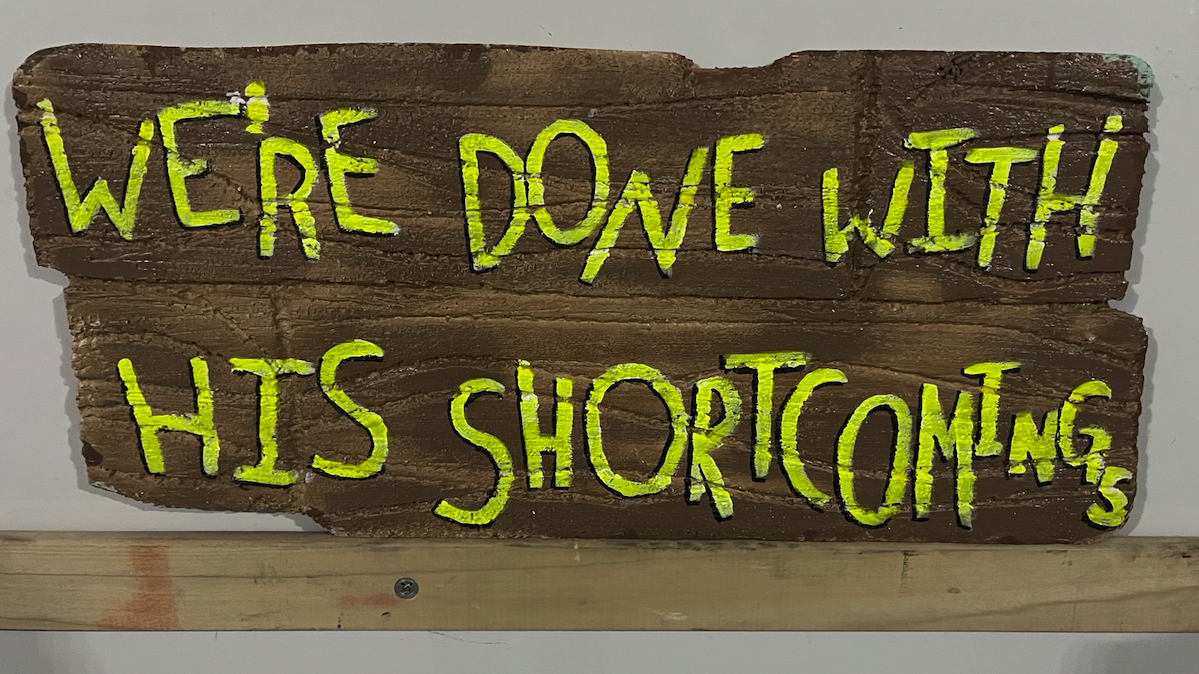 WE'RE DONE WITH
HIS SHORTCOMINGS